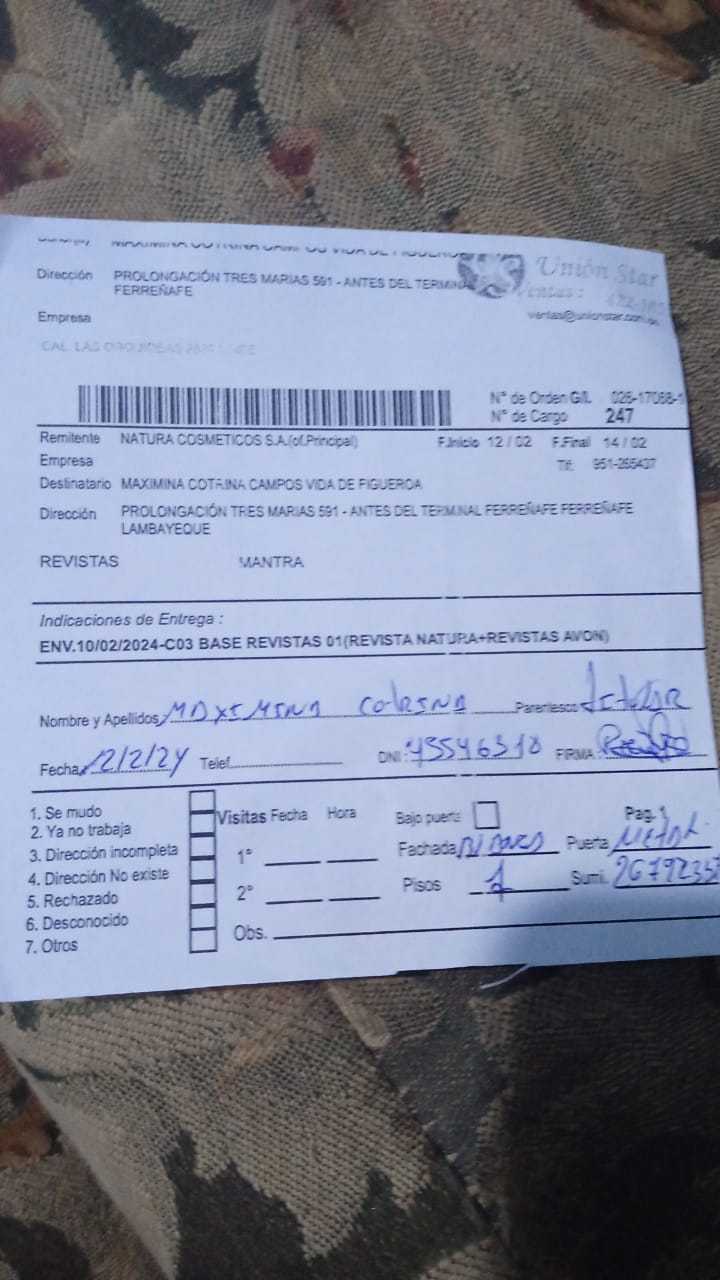 MAXIMINA COTRINA CAMPOS VIDA DE FIGUEROA
Dirección PROLONGACIÓN TRES MARIAS 591 - ANTES DEL TERMINAL
FERREÑAFE
Unión Star
Ventas :
ventas@unionstar.com
Empresa
CAL. LAS ORQUIDEAS
N° de Orden G/L 026-17068-1
N° de Cargo 247
Remitente NATURA COSMETICOS S.A.(of.Principal) F.Inicio 12 / 02 F.Final 14 / 02
Empresa Tlf: 951-265437
Destinatario MAXIMINA COTRINA CAMPOS VIDA DE FIGUEROA
Dirección PROLONGACIÓN TRES MARIAS 591 - ANTES DEL TERMINAL FERREÑAFE FERREÑAFE
LAMBAYEQUE
REVISTAS MANTRA
Indicaciones de Entrega :
ENV.10/02/2024-C03 BASE REVISTAS 01(REVISTA NATURA+REVISTAS AVON)
Nombre y Apellidos MAXIMINA COTRINA Parentesco titular
Fecha 12/2/24 Telef. DNI: FIRMA
1. Se mudo
2. Ya no trabaja
3. Dirección incompleta
4. Dirección No existe
5. Rechazado
6. Desconocido
7. Otros
Visitas Fecha Hora
1°
2°
Obs.
Bajo puerta Pag. 1
Fachada Puerta Metal
Pisos 1 Sumi.